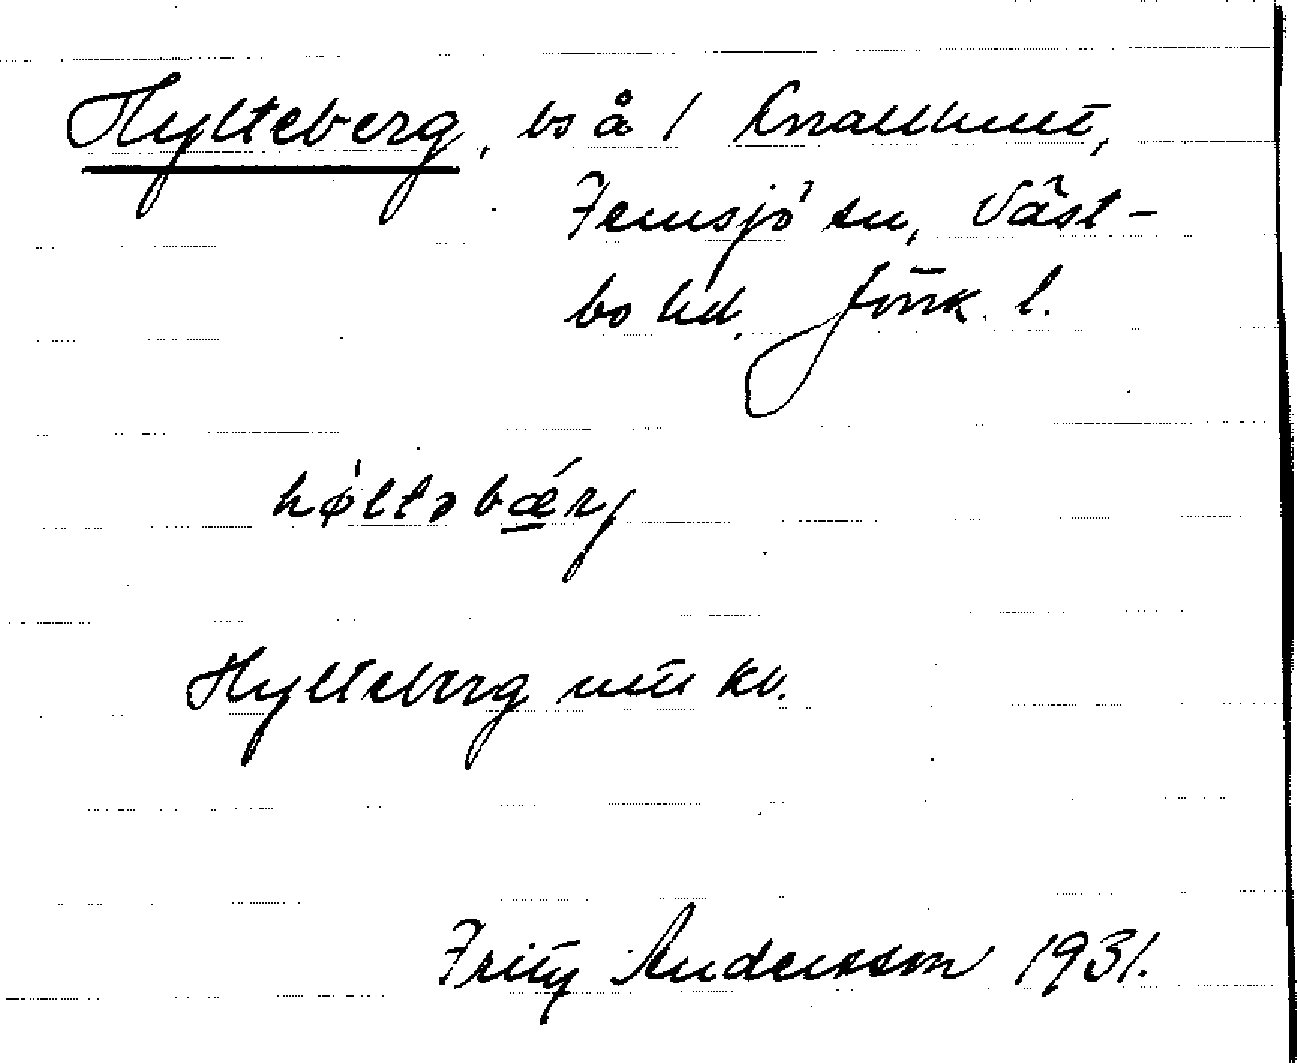 Hylteberg, bs å 1 Knallhult,
Femsjö sn, Väst-
bo hd. Jönk. l.
hø̍ltəbǽrj
Hylteberg mtl kv.
Fritz Andersson 1931.